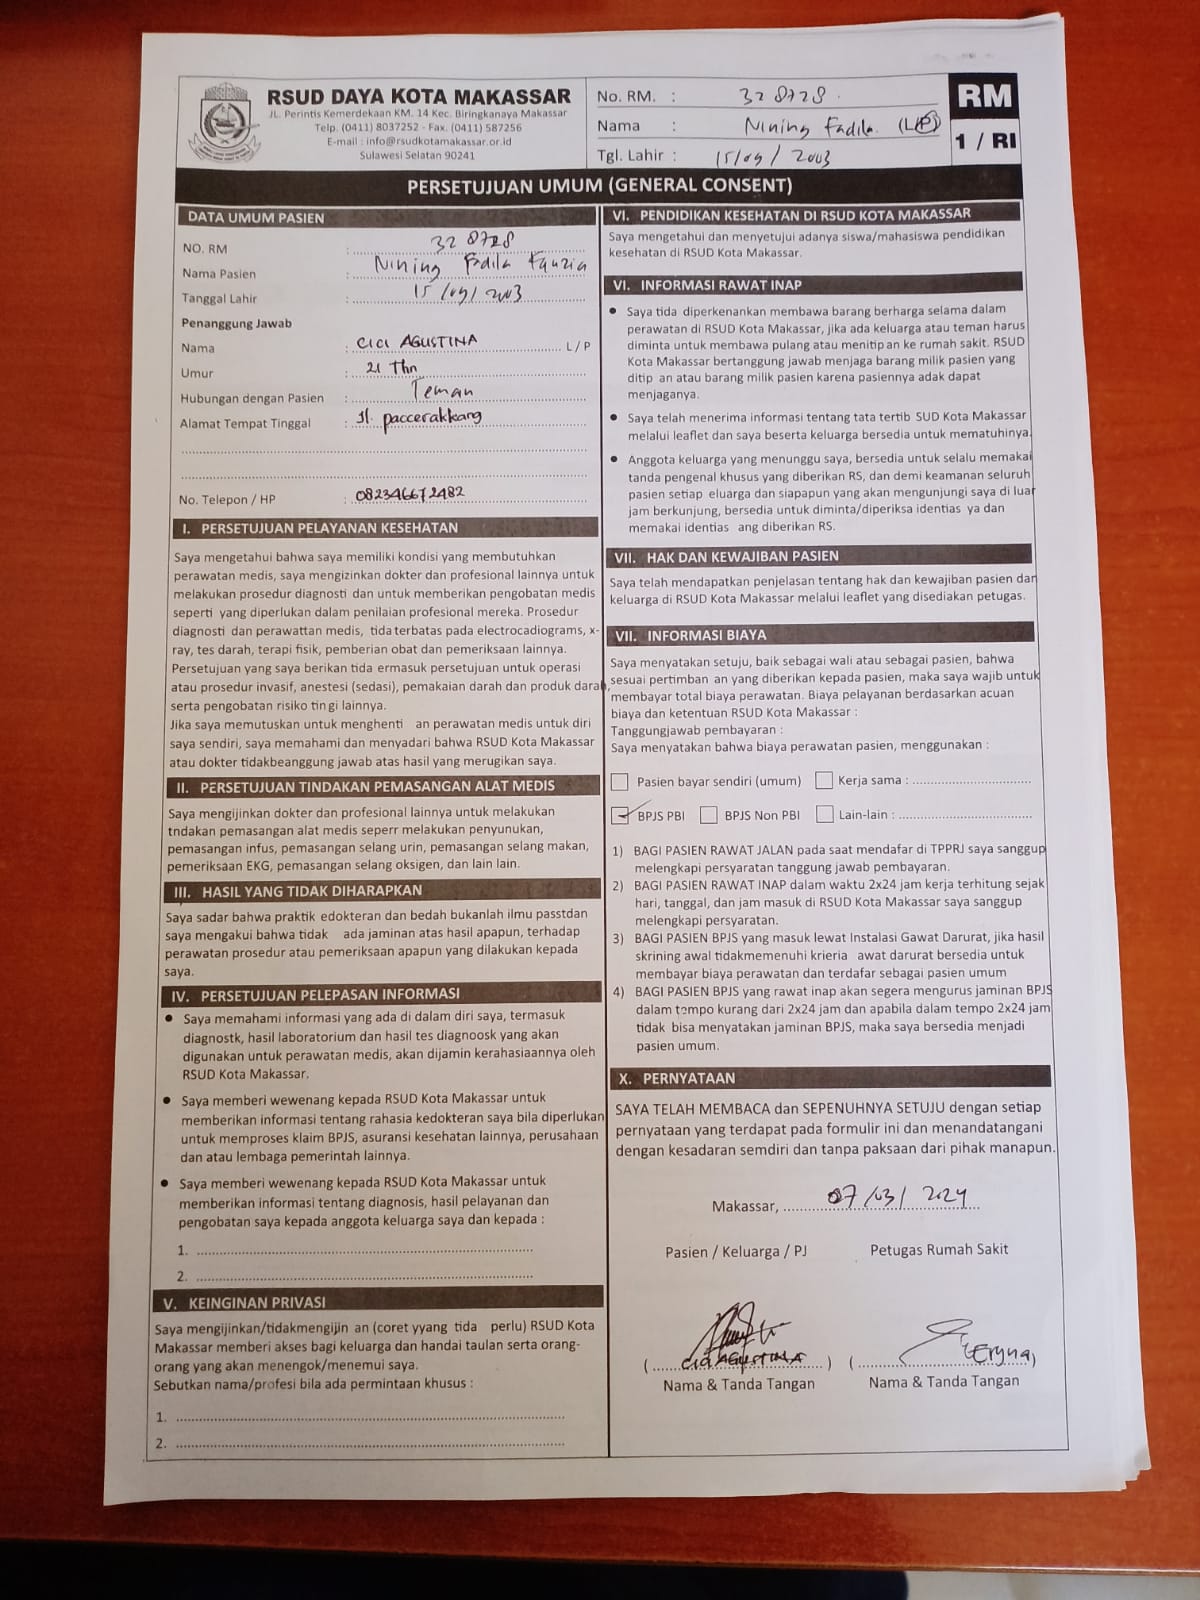 RSUD DAYA KOTA MAKASSAR
JL. Perintis Kemerdekaan KM. 14 Kec. Biringkanaya Makassar
Telp. (0411) 8037252 - Fax. (0411) 587256
E-mail : info@rsudkotamakassar.or.id
Sulawesi Selatan 90241
No. RM. : 328728
Nama : Nining Fadila (L/P)
Tgl. Lahir : 15/09/2003
RM
1 / RI
PERSETUJUAN UMUM (GENERAL CONSENT)
DATA UMUM PASIEN
NO. RM : 328728
Nama Pasien : Nining Fadila Fauzia
Tanggal Lahir : 15/09/2003
Penanggung Jawab
Nama : CICI AGUSTINA L / P
Umur : 21 Thn
Hubungan dengan Pasien : Teman
Alamat Tempat Tinggal : Jl. paccerakkang
No. Telepon / HP : 082346672482
I. PERSETUJUAN PELAYANAN KESEHATAN
Saya mengetahui bahwa saya memiliki kondisi yang membutuhkan
perawatan medis, saya mengizinkan dokter dan profesional lainnya untuk
melakukan prosedur diagnosti dan untuk memberikan pengobatan medis
seperti yang diperlukan dalam penilaian profesional mereka. Prosedur
diagnosti dan perawattan medis, tida terbatas pada electrocadiograms, x-
ray, tes darah, terapi fisik, pemberian obat dan pemeriksaan lainnya.
Persetujuan yang saya berikan tida ermasuk persetujuan untuk operasi
atau prosedur invasif, anestesi (sedasi), pemakaian darah dan produk darah,
serta pengobatan risiko tin gi lainnya.
Jika saya memutuskan untuk menghenti an perawatan medis untuk diri
saya sendiri, saya memahami dan menyadari bahwa RSUD Kota Makassar
atau dokter tidakbeanggung jawab atas hasil yang merugikan saya.
II. PERSETUJUAN TINDAKAN PEMASANGAN ALAT MEDIS
Saya mengijinkan dokter dan profesional lainnya untuk melakukan
tndakan pemasangan alat medis seperr melakukan penyunukan,
pemasangan infus, pemasangan selang urin, pemasangan selang makan,
pemeriksaan EKG, pemasangan selang oksigen, dan lain lain.
III. HASIL YANG TIDAK DIHARAPKAN
Saya sadar bahwa praktik edokteran dan bedah bukanlah ilmu passtdan
saya mengakui bahwa tidak ada jaminan atas hasil apapun, terhadap
perawatan prosedur atau pemeriksaan apapun yang dilakukan kepada
saya.
IV. PERSETUJUAN PELEPASAN INFORMASI
• Saya memahami informasi yang ada di dalam diri saya, termasuk
diagnostk, hasil laboratorium dan hasil tes diagnoosk yang akan
digunakan untuk perawatan medis, akan dijamin kerahasiaannya oleh
RSUD Kota Makassar.
• Saya memberi wewenang kepada RSUD Kota Makassar untuk
memberikan informasi tentang rahasia kedokteran saya bila diperlukan
untuk memproses klaim BPJS, asuransi kesehatan lainnya, perusahaan
dan atau lembaga pemerintah lainnya.
• Saya memberi wewenang kepada RSUD Kota Makassar untuk
memberikan informasi tentang diagnosis, hasil pelayanan dan
pengobatan saya kepada anggota keluarga saya dan kepada :
1.
2.
V. KEINGINAN PRIVASI
Saya mengijinkan/tidakmengijin an (coret yyang tida perlu) RSUD Kota
Makassar memberi akses bagi keluarga dan handai taulan serta orang-
orang yang akan menengok/menemui saya.
Sebutkan nama/profesi bila ada permintaan khusus :
1.
2.
VI. PENDIDIKAN KESEHATAN DI RSUD KOTA MAKASSAR
Saya mengetahui dan menyetujui adanya siswa/mahasiswa pendidikan
kesehatan di RSUD Kota Makassar.
VI. INFORMASI RAWAT INAP
• Saya tida diperkenankan membawa barang berharga selama dalam
perawatan di RSUD Kota Makassar, jika ada keluarga atau teman harus
diminta untuk membawa pulang atau menitip an ke rumah sakit. RSUD
Kota Makassar bertanggung jawab menjaga barang milik pasien yang
ditip an atau barang milik pasien karena pasiennya adak dapat
menjaganya.
• Saya telah menerima informasi tentang tata tertib SUD Kota Makassar
melalui leaflet dan saya beserta keluarga bersedia untuk mematuhinya.
• Anggota keluarga yang menunggu saya, bersedia untuk selalu memakai
tanda pengenal khusus yang diberikan RS, dan demi keamanan seluruh
pasien setiap eluarga dan siapapun yang akan mengunjungi saya di luar
jam berkunjung, bersedia untuk diminta/diperiksa identias ya dan
memakai identias ang diberikan RS.
VII. HAK DAN KEWAJIBAN PASIEN
Saya telah mendapatkan penjelasan tentang hak dan kewajiban pasien dan
keluarga di RSUD Kota Makassar melalui leaflet yang disediakan petugas.
VII. INFORMASI BIAYA
Saya menyatakan setuju, baik sebagai wali atau sebagai pasien, bahwa
sesuai pertimban an yang diberikan kepada pasien, maka saya wajib untuk
membayar total biaya perawatan. Biaya pelayanan berdasarkan acuan
biaya dan ketentuan RSUD Kota Makassar :
Tanggungjawab pembayaran :
Saya menyatakan bahwa biaya perawatan pasien, menggunakan :
Pasien bayar sendiri (umum) Kerja sama :
BPJS PBI BPJS Non PBI Lain-lain :
1) BAGI PASIEN RAWAT JALAN pada saat mendafar di TPPRJ saya sanggup
melengkapi persyaratan tanggung jawab pembayaran.
2) BAGI PASIEN RAWAT INAP dalam waktu 2x24 jam kerja terhitung sejak
hari, tanggal, dan jam masuk di RSUD Kota Makassar saya sanggup
melengkapi persyaratan.
3) BAGI PASIEN BPJS yang masuk lewat Instalasi Gawat Darurat, jika hasil
skrining awal tidakmemenuhi krieria awat darurat bersedia untuk
membayar biaya perawatan dan terdafar sebagai pasien umum
4) BAGI PASIEN BPJS yang rawat inap akan segera mengurus jaminan BPJS
dalam tempo kurang dari 2x24 jam dan apabila dalam tempo 2x24 jam
tidak bisa menyatakan jaminan BPJS, maka saya bersedia menjadi
pasien umum.
X. PERNYATAAN
SAYA TELAH MEMBACA dan SEPENUHNYA SETUJU dengan setiap
pernyataan yang terdapat pada formulir ini dan menandatangani
dengan kesadaran semdiri dan tanpa paksaan dari pihak manapun.
Makassar, 07/03/2024
Pasien / Keluarga / PJ Petugas Rumah Sakit
( CICI AGUSTINA ) ( )
Nama & Tanda Tangan Nama & Tanda Tangan